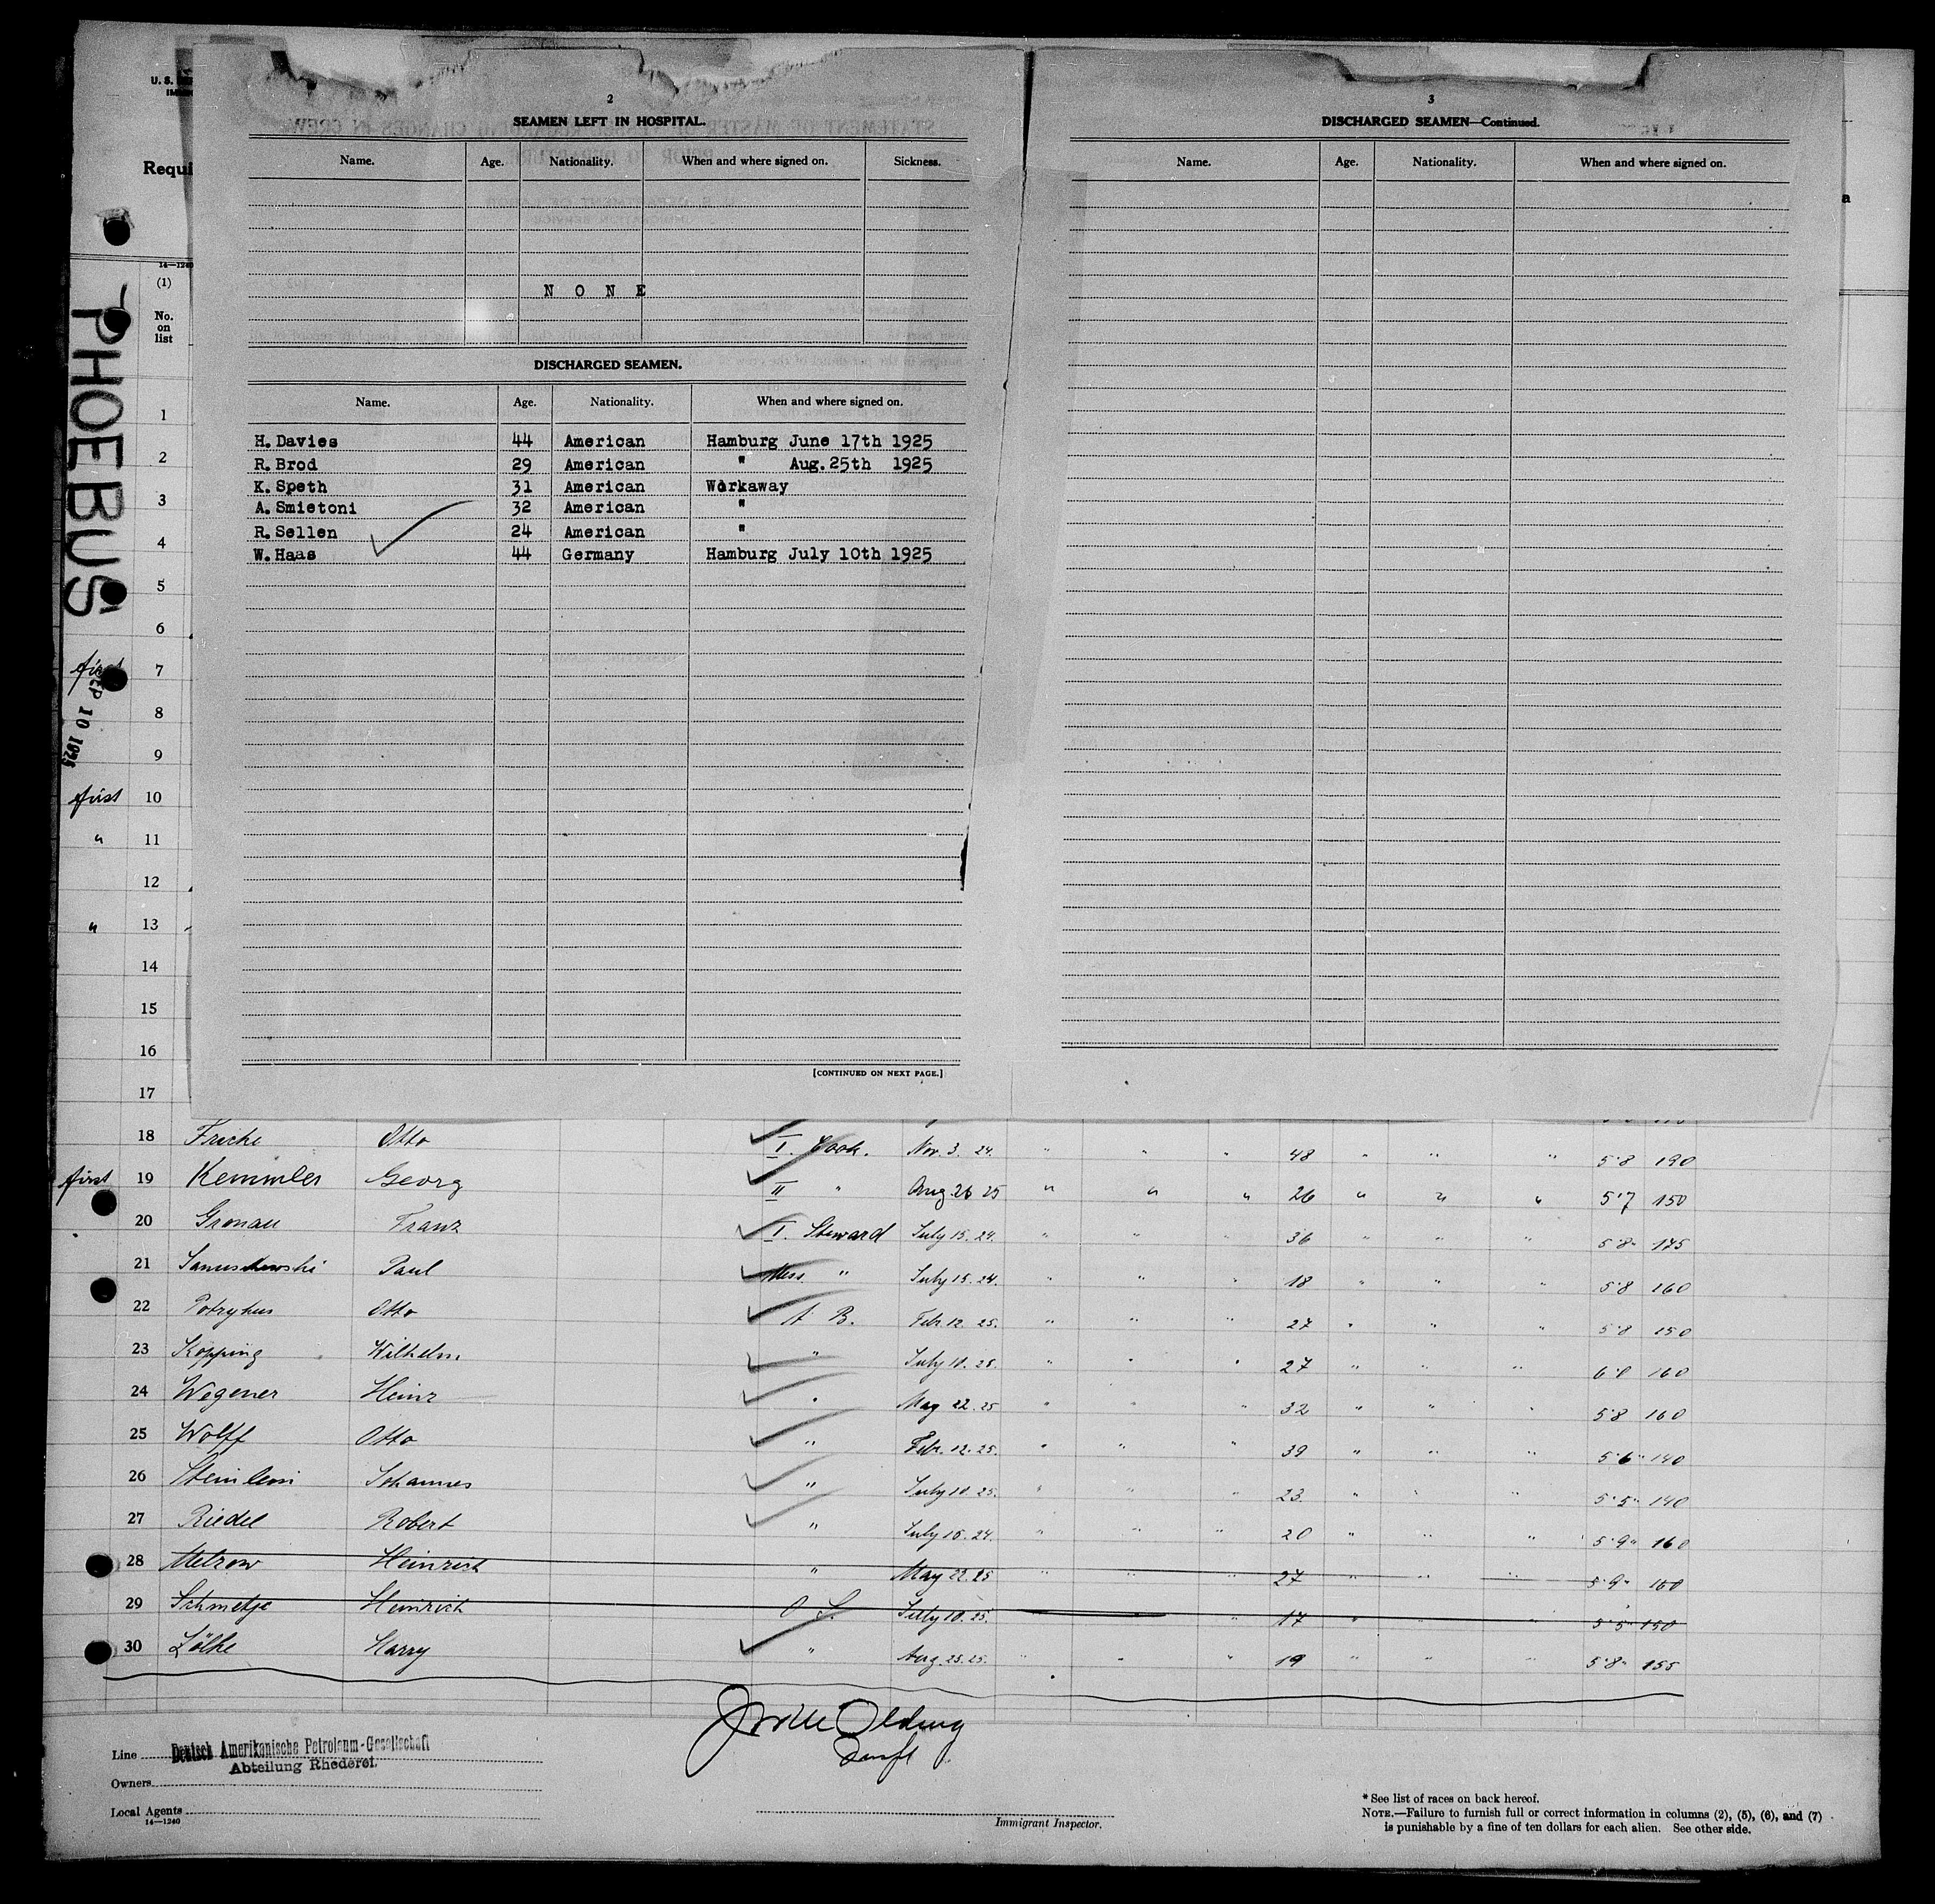 U. S.
Requi
14—1240
(1)
No.
on
list
PHOEBUS
SEP 10 1925
2
SEAMEN LEFT IN HOSPITAL.
Name. Age. Nationality. When and where signed on. Sickness.
N O N E
DISCHARGED SEAMEN.
Name. Age. Nationality. When and where signed on.
H. Davies 44 American Hamburg June 17th 1925
R. Brod 29 American " Aug. 25th 1925
K. Speth 31 American Workaway
A. Smietoni 32 American "
R. Sellen 24 American "
W. Haas 44 Germany Hamburg July 10th 1925
[CONTINUED ON NEXT PAGE.]
3
DISCHARGED SEAMEN—Continued.
Name. Age. Nationality. When and where signed on.
a
1
2
3
4
5
6
first 7
8
9
first 10
" 11
12
" 13
14
15
16
17
18 Fricke Otto I. Cook. Nov. 3. 24. " " " 48 " " " 5'8 190
first 19 Kemmler Georg II " Aug. 26 25 " " " 26 " " " 5'7 150
20 Gronau Franz I. Steward July 15. 24. " " " 36 " " " 5'8" 175
21 Januschewski Paul Mess. " July 15. 24. " " " 18 " " " 5'8 160
22 Potrykus Otto A. B. Febr. 12. 25. " " " 27 " " " 5'8 150
23 Kopping Wilhelm " July 10. 25. " " " 27 " " " 6'0 160
24 Wegener Heinz " May 22. 25 " " " 32 " " " 5'8 160
25 Wolff Otto " Febr. 12. 25. " " " 39 " " " 5'6" 140
26 Johannes " July 10. 25. " " " 23. " " " 5'5" 140
27 Riedel Robert " July 15. 24. " " " 20 " " " 5'9" 160
28 Metzow Heinrich " May 22. 25 " " " 27 " " " 5'9" 160
29 Schmetje Heinrich O. S. July 10. 25. " 17 5'5" 150
30 Lölke Harry " Aug. 25. 25. " " " 19 " " " 5'8" 155
Line Deutsch Amerikanische Petroleum-Gesellschaft
Abteilung Rhederei.
Owners
Local Agents
14—1240
Immigrant Inspector.
* See list of races on back hereof.
NOTE.—Failure to furnish full or correct information in columns (2), (5), (6), and (7)
is punishable by a fine of ten dollars for each alien. See other side.